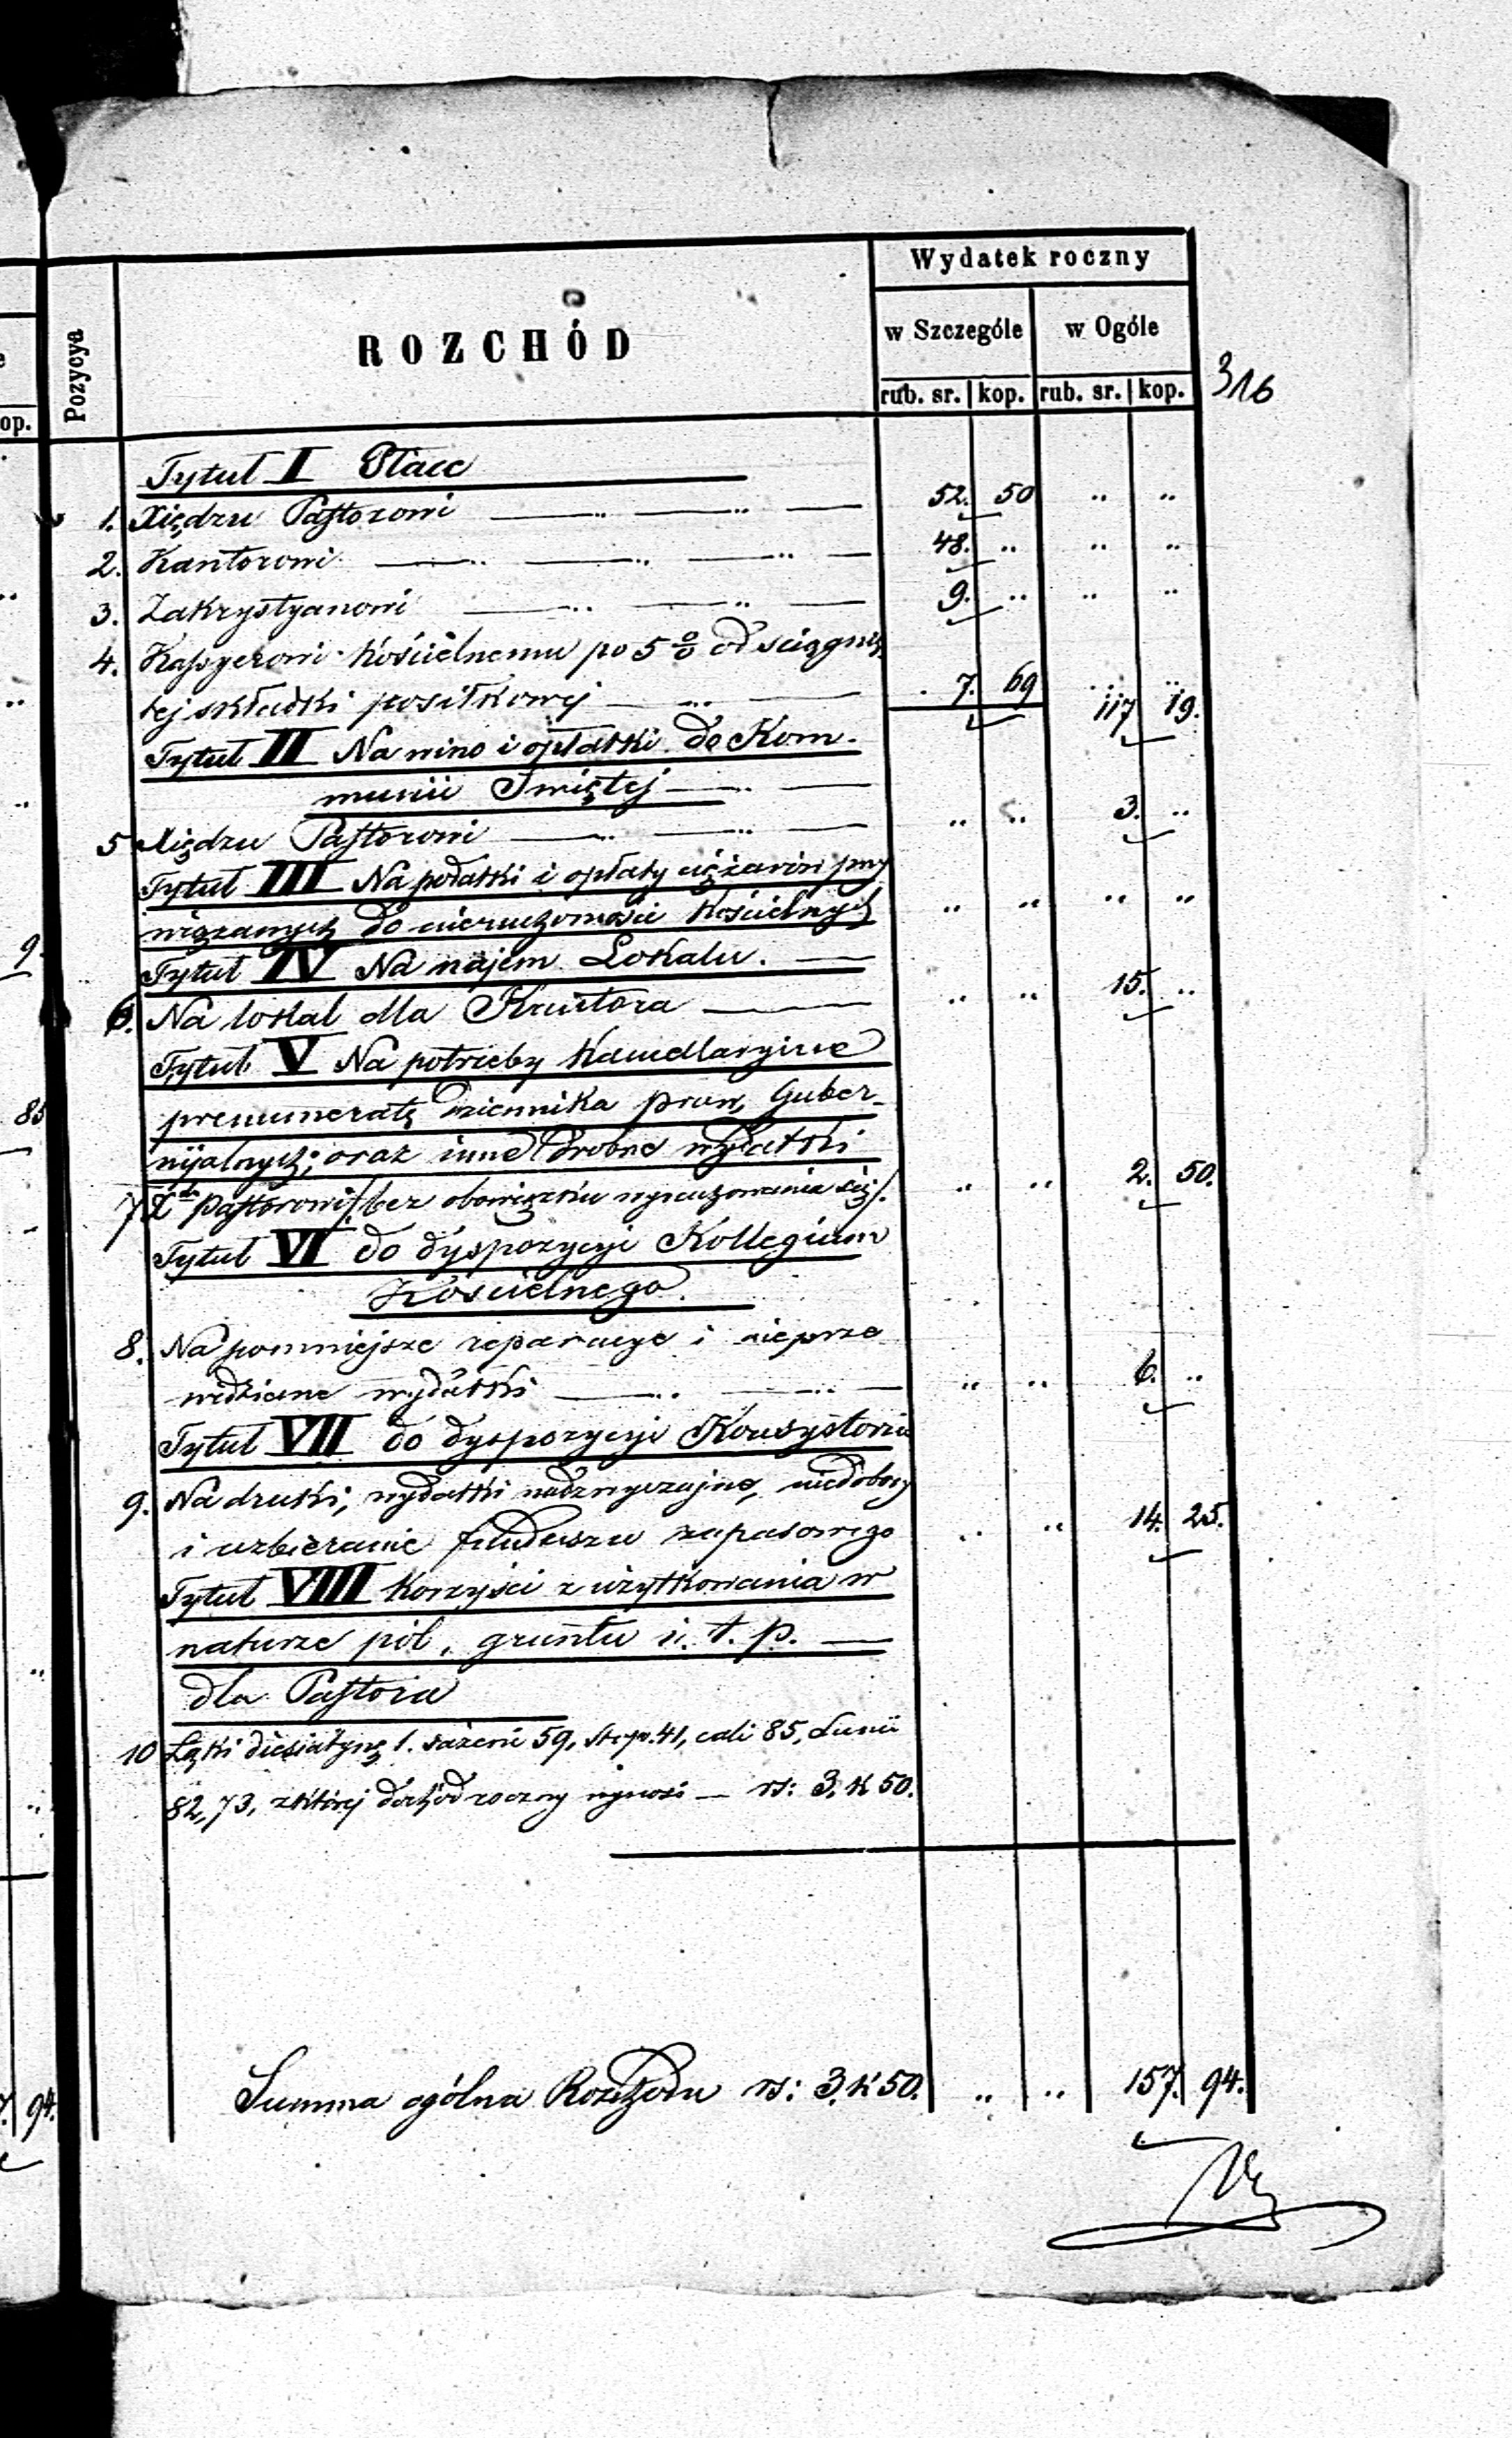 Wydatek roczny
Pozycya
ROZCHÓD
w Szczególe w Ogóle
rub. sr. kop. rub. sr. kop.
316
op.
Tytuł I Płace
1. Xiędzu Pastorowi 52. 50 .. ..
2. Kantorowi 48. .. .. ..
3. Zakrystyanowi 9. .. .. ..
4. Kassyerowi Kościelnemu po 5 % od ściągnię
tej składki posiłkowej 7. 69 117 19.
Tytuł II Na wino i opłatki do Kom-
munii Świętej
5 Xiędzu Pastorowi .. .. 3. ..
Tytuł III Na podatki i opłaty ciężarów przy
wiązanych do nieruchomości Kościelnych .. .. .. ..
Tytuł IV Na najem Lokalu.
6. Na lokal dla Kantora .. .. 15. ..
Tytuł V Na potrzeby Kancellaryjne
prenumeratę Dziennika praw, Guber-
nijalnych; oraz inne drobne wydatki
7. Xdu Pastorowi /bez obowiązku wyrachowania się/. .. .. 2. 50.
Tytuł VI do dyspozycyi Kollegium
Kościelnego.
8. Na pomniejsze reparacye i nieprze
widziane wydatki .. .. 6. ..
Tytuł VII do dyspozycyi Konsystorza
9. Na druki, wydatki nadzwyczajne, niedobory
i uzbieranie funduszu zapasowego .. .. 14. 25.
Tytuł VIII korzyści z użytkowania w
naturze pól, gruntu i. t. p.
dla Pastora
10 Łąki diesiatynę 1. sażeni 59, stop. 41, cali 85, Linii
82,73, z której dochód roczny wynosi — rs: 3. k 50.
Summa ogólna Rozchodu rs: 3. k 50. .. .. 157. 94.
9
85
94.